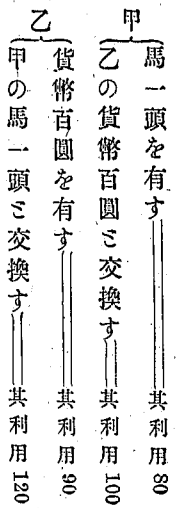 甲
馬一頭を有す——其利用 80
乙の貨幣百圓と交換す——其利用 100
乙
貨幣百圓を有す——其利用 90
甲の馬一頭と交換す——其利用 120